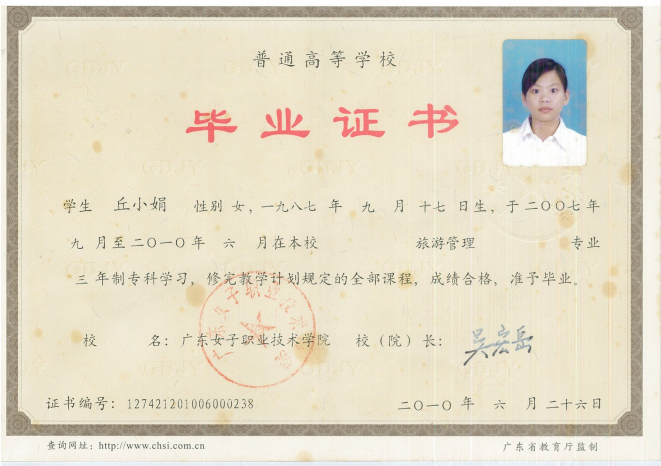 普通高等学校
毕业证书
学生 丘小娟 性别 女，一九八七 年 九 月 十七 日生，于 二〇〇七年
九 月至 二〇一〇 年 六 月在本校 旅游管理 专业
三 年制专科学习，修完教学计划规定的全部课程，成绩合格，准予毕业。
校 名：广东女子职业技术学院 校（院）长：吴宏岳
广东女子职业技术学院
证书编号：127421201006000238 二〇一〇 年 六 月 二十六日
查询网址：http://www.chsi.com.cn 广东省教育厅监制